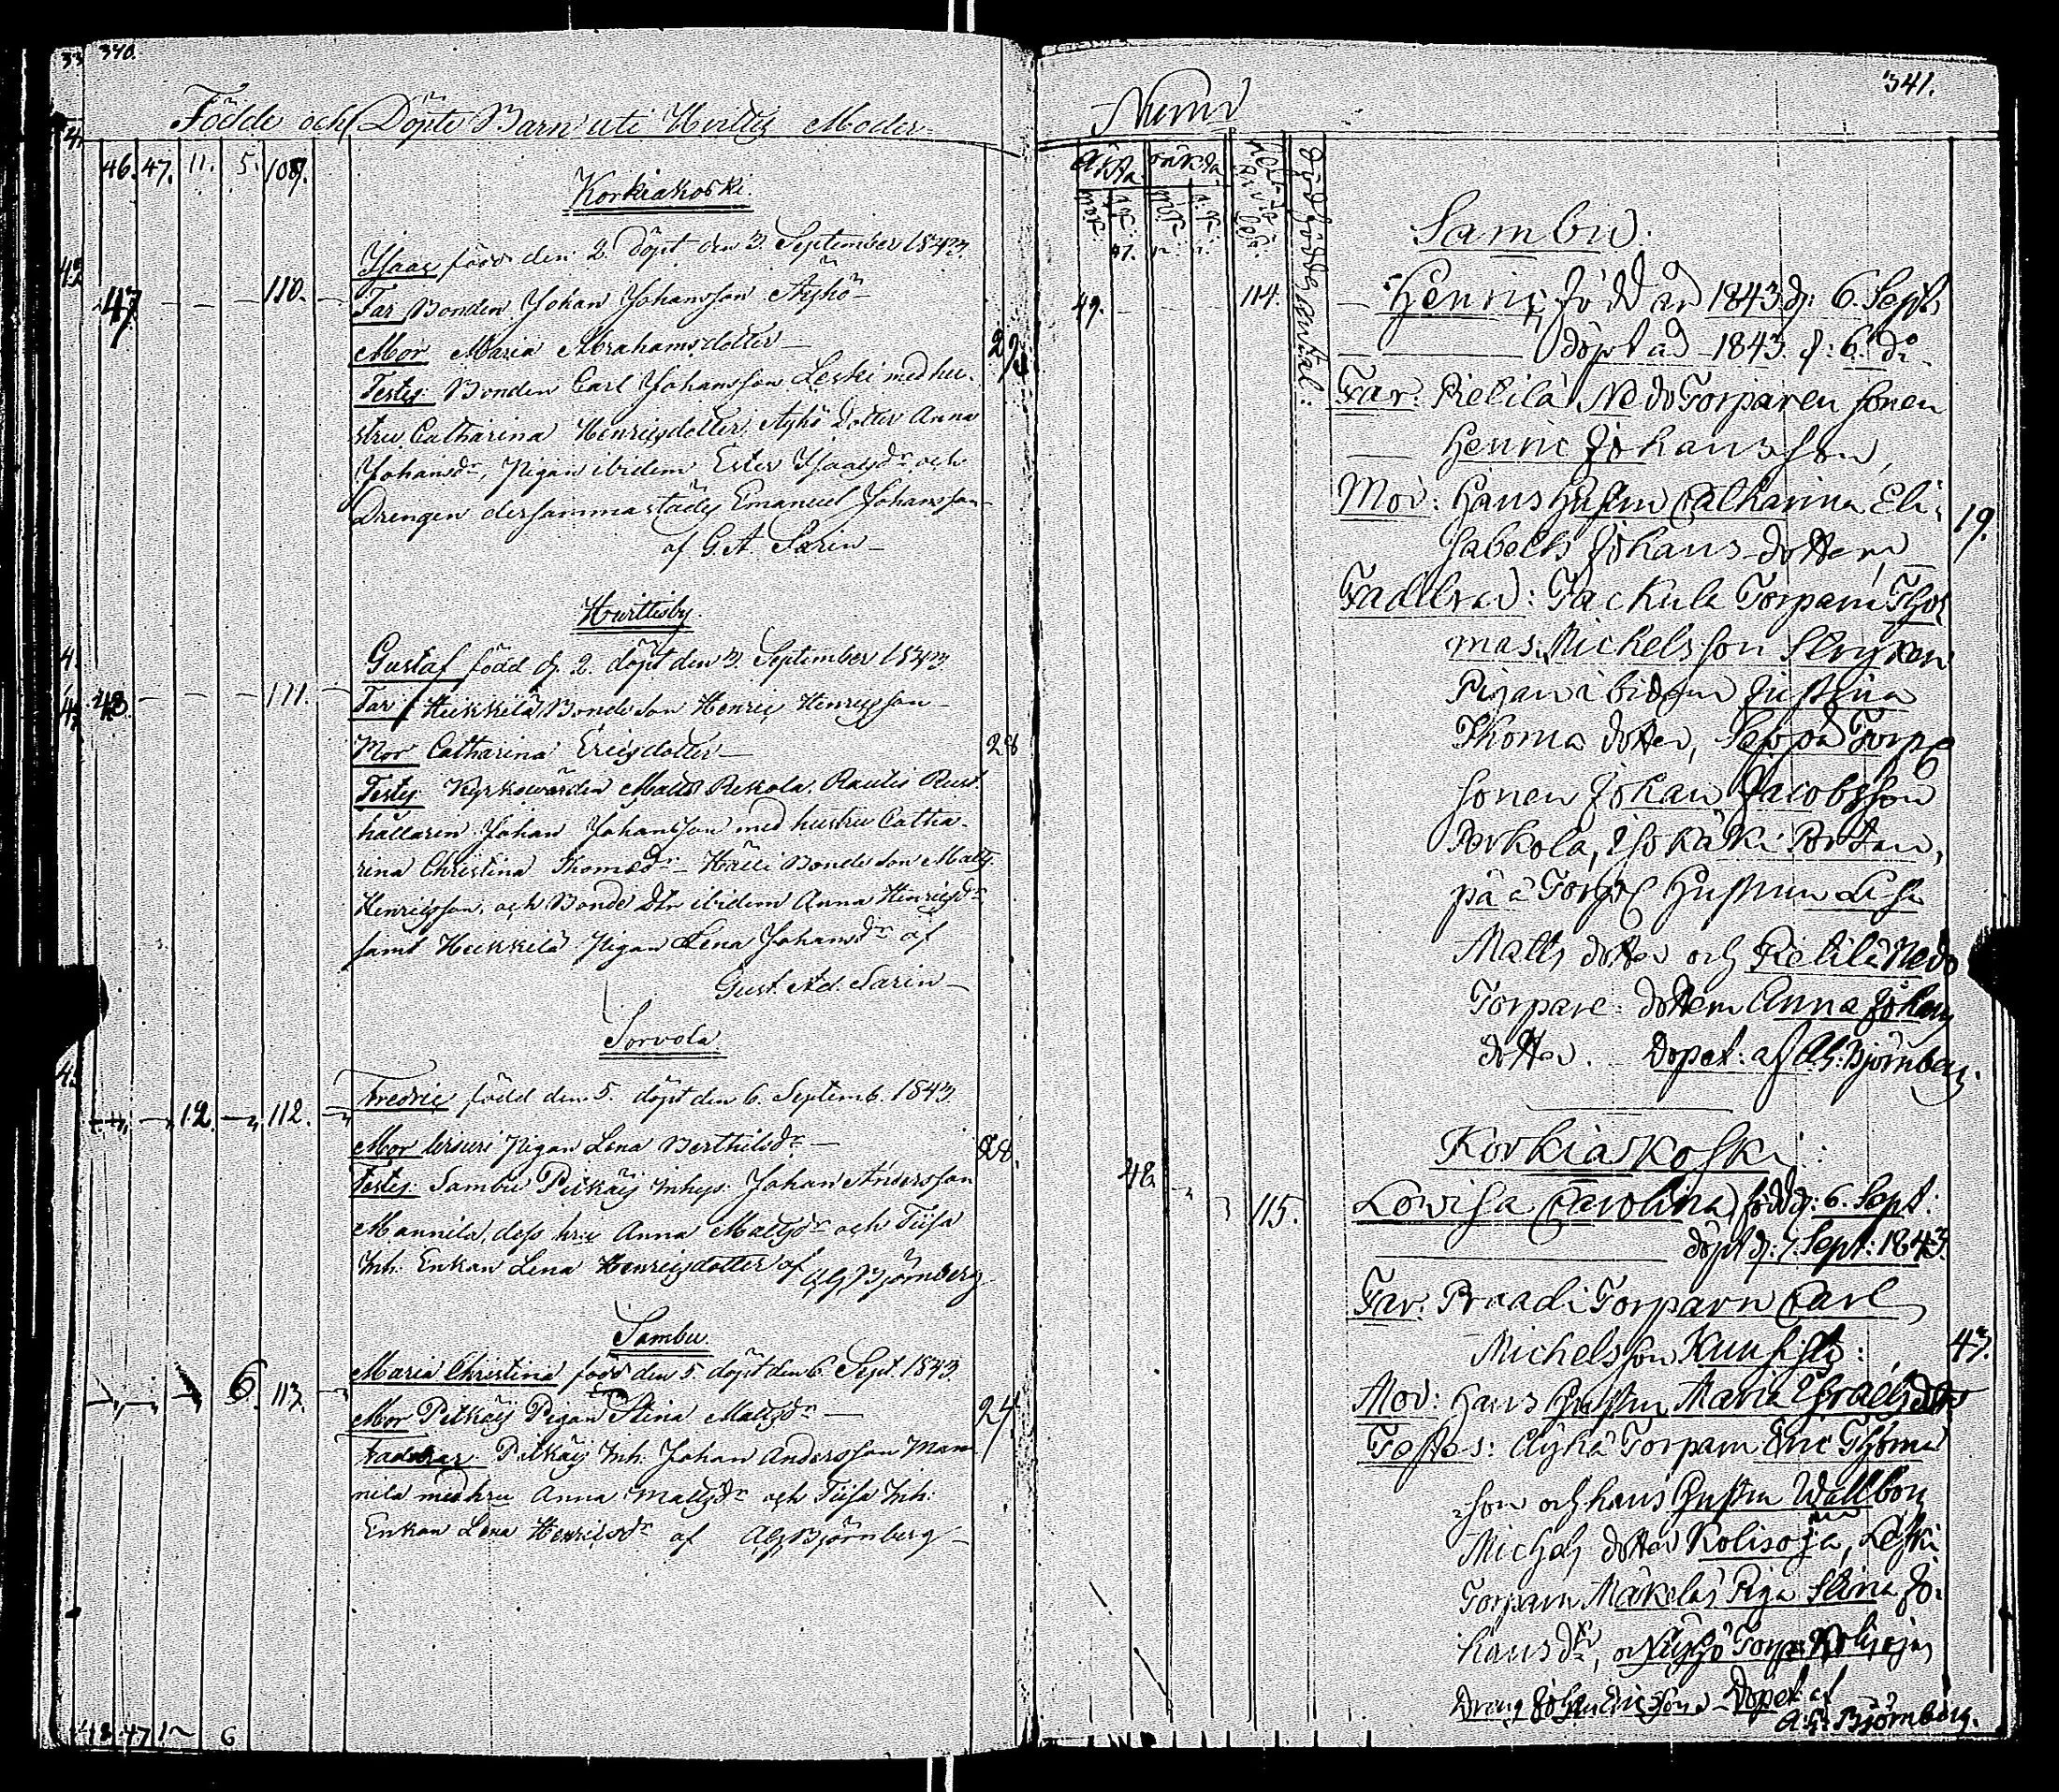 340.
Födde och Döpte Barn uti Hvittis Moder
46. 47. 11. 5. 109.
Korkiakoski.
Isaac född den 2. döpt den 3. September 1843.
47 110.
Far Bonden Johan Johansson Äyhö
Mor Maria Abrahamsdotter
Testes Bonden Carl Johansson Leski med hu-
stru Catharina Henricsdotter, Äyhö Dotter Anna
Johansdr, Pigan ibidem Ester Isaacsdr och
Drengen dersammastädes Emanuel Johansson
af G. A. Sarin
Hvittisby.
Gustaf född d. 2. döpt den 3. September 1843
48. 111.
Far Heikkilä Bondeson Henric Henricsson
Mor Catharina Ericsdotter
28
Testes Kyrkowärden Matts Rekola, Raulis Rust-
hållaren Johan Johansson med hustru Catha-
rina Christina Thomædr Bondeson Matts
Henricsson, och Bonde Dtr ibidem Anna Henricsdr
samt Heikkilä Pigan Lena Johansdr af
Gust. Ad. Sarin
Sorvola
Fredric född den 5. döpt den 6. Septemb. 1843.
12. 112.
Mor Pigan Lena Berthilsdr
28.
Testes Sambu Pitkäis Inhys. Johan Andersson
Mannila, dess hru Anna Mattsdr och Tiisa
Inh. Enkan Lena Henricsdotter af Alg. Björnberg
Sambu.
Maria Christina född den 5. döpt den 6. Sept. 1843.
6 113.
Mor Pitkäis Pigan Stina Mattsdr
24
Faddrar Pitkäis Inh. Johan Andersson Man-
nila med hru Anna Mattsdr och Tiisa Inh.
Enkan Lena Henricsdr af Alg. Björnberg
48 47 12 6
341.
Sambu.
49. 114.
Henric född år 1843 d: 6. Sept
döpt år 1843. d: 6. do
Far: Pietilä Nedo Torparen sonen
Henric Johansson,
Mor: Hans Hustru Catharina Eli-
19.
sabeth Johans dotter,
Faddrar: Torparn Tho-
mas Michelsson
Pigan ibidem Justina
Thoma dotter, Seppä Torp
sonen Johan Jacobsson
Porkola, Isokäki
på Torp Hustrun Lisa
Matts dotter och Pietilä Nedo
Torpare dottern Anna Johans
dotter. Döpet: af Alg: Björnberg.
Korkiakoski:
48 115.
Lovisa Carolina, född d: 6. Sept:
döpt d: 7. Sept: 1843.
Far: Praadi Torparn Carl
Michelsson
43.
Mor: Hans Hustru Maria Israels dotter
Testes: Äyhö Torparn Eric Thomas
son och hans Hustru Wallborg
Michels dotter Kolisoja, Leski
Torparn Mäkeläs Piga Stina Jo-
hansdr, och Äyhö Torp: Kolisojas
Dräng Johan Ericsson Döpet af
A. G. Björnberg.